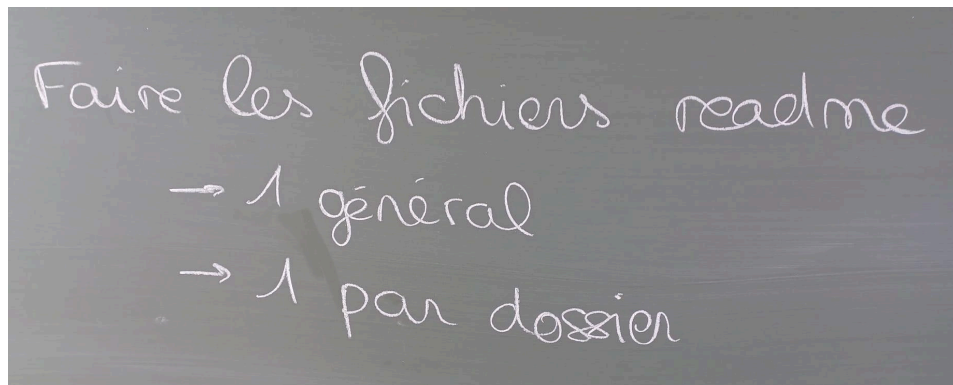 Faire les fichiers readme
→ 1 général
→ 1 par dossier